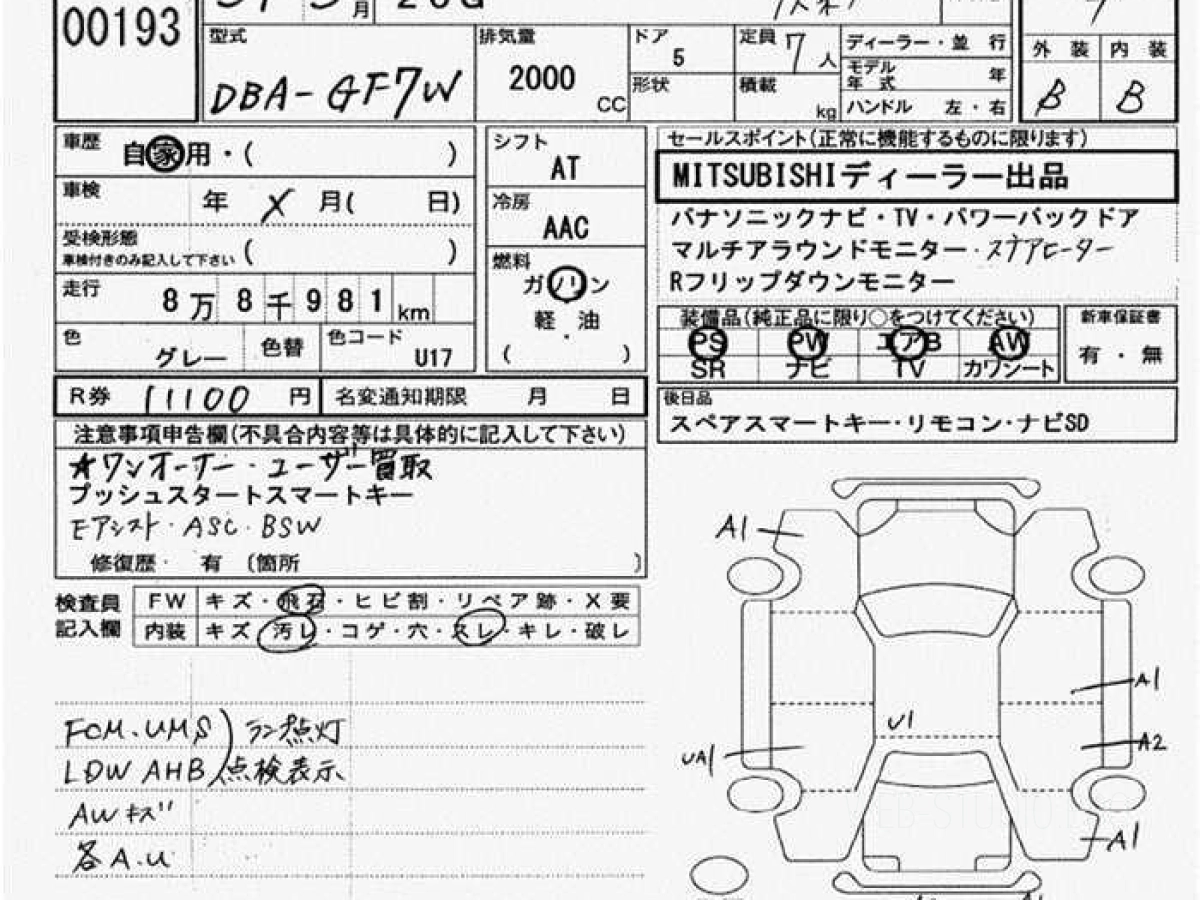 00193
月
20G
型式
DBA-GF7W
排気量
2000
CC
ドア
5
形状
定員 7 人
積載
kg
ディーラー・並 行
モデル
年 式 年
ハンドル 左・右
外 装 内 装
B B
車歴
自家用・( )
車検
年 X 月( 日)
受検形態
車検付きのみ記入して下さい ( )
走行
8万8千981km
色
グレー
色替
色コード
U17
シフト
AT
冷房
AAC
燃料
ガソリン
・
軽 油
・
( )
セールスポイント(正常に機能するものに限ります)
MITSUBISHIディーラー出品
パナソニックナビ・TV・パワーバックドア
マルチアラウンドモニター・
Rフリップダウンモニター
装備品(純正品に限り○をつけてください)
PS PW エアB AW
SR ナビ TV カワシート
新車保証書
有・無
R券 11100 円
名変通知期限 月 日
後日品
スペアスマートキー・リモコン・ナビSD
注意事項申告欄(不具合内容等は具体的に記入して下さい)
★ワンオーナー・ユーザー買取
プッシュスタートスマートキー
Eアシスト・ASC・BSW
修復歴・ 有 〔箇所 〕
検査員
記入欄
FW キズ・飛石・ヒビ割・リペア跡・X要
内装 キズ・汚レ・コゲ・穴・スレ・キレ・破レ
FCM.UMS ランプ点灯
LDW AHB 点検表示
AWキズ
各A.U
A1
A1
U1
UA1
A2
A1